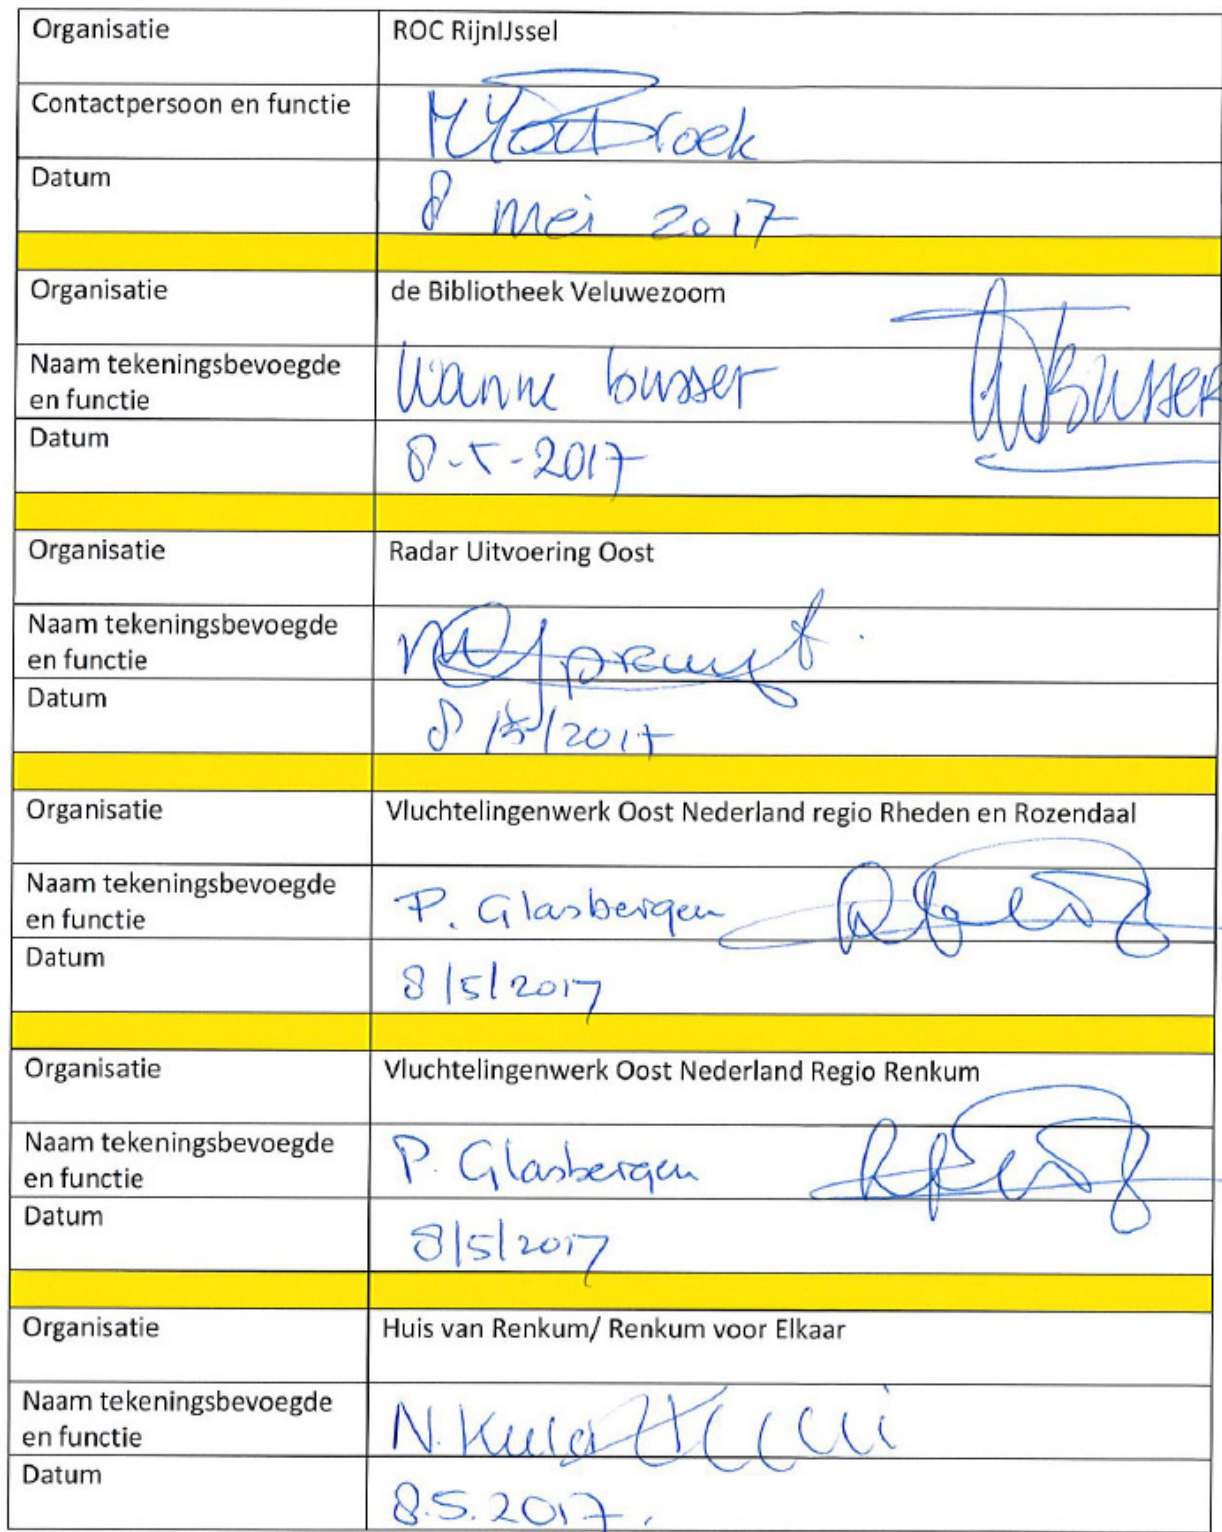 Organisatie ROC RijnIJssel
Contactpersoon en functie
Datum 8 mei 2017
Organisatie de Bibliotheek Veluwezoom
Naam tekeningsbevoegde en functie Wanne Busser
Datum 8-5-2017
Organisatie Radar Uitvoering Oost
Naam tekeningsbevoegde en functie
Datum 8/5/2017
Organisatie Vluchtelingenwerk Oost Nederland regio Rheden en Rozendaal
Naam tekeningsbevoegde en functie P. Glasbergen
Datum 8/5/2017
Organisatie Vluchtelingenwerk Oost Nederland Regio Renkum
Naam tekeningsbevoegde en functie P. Glasbergen
Datum 8/5/2017
Organisatie Huis van Renkum/ Renkum voor Elkaar
Naam tekeningsbevoegde en functie N.
Datum 8.5.2017.